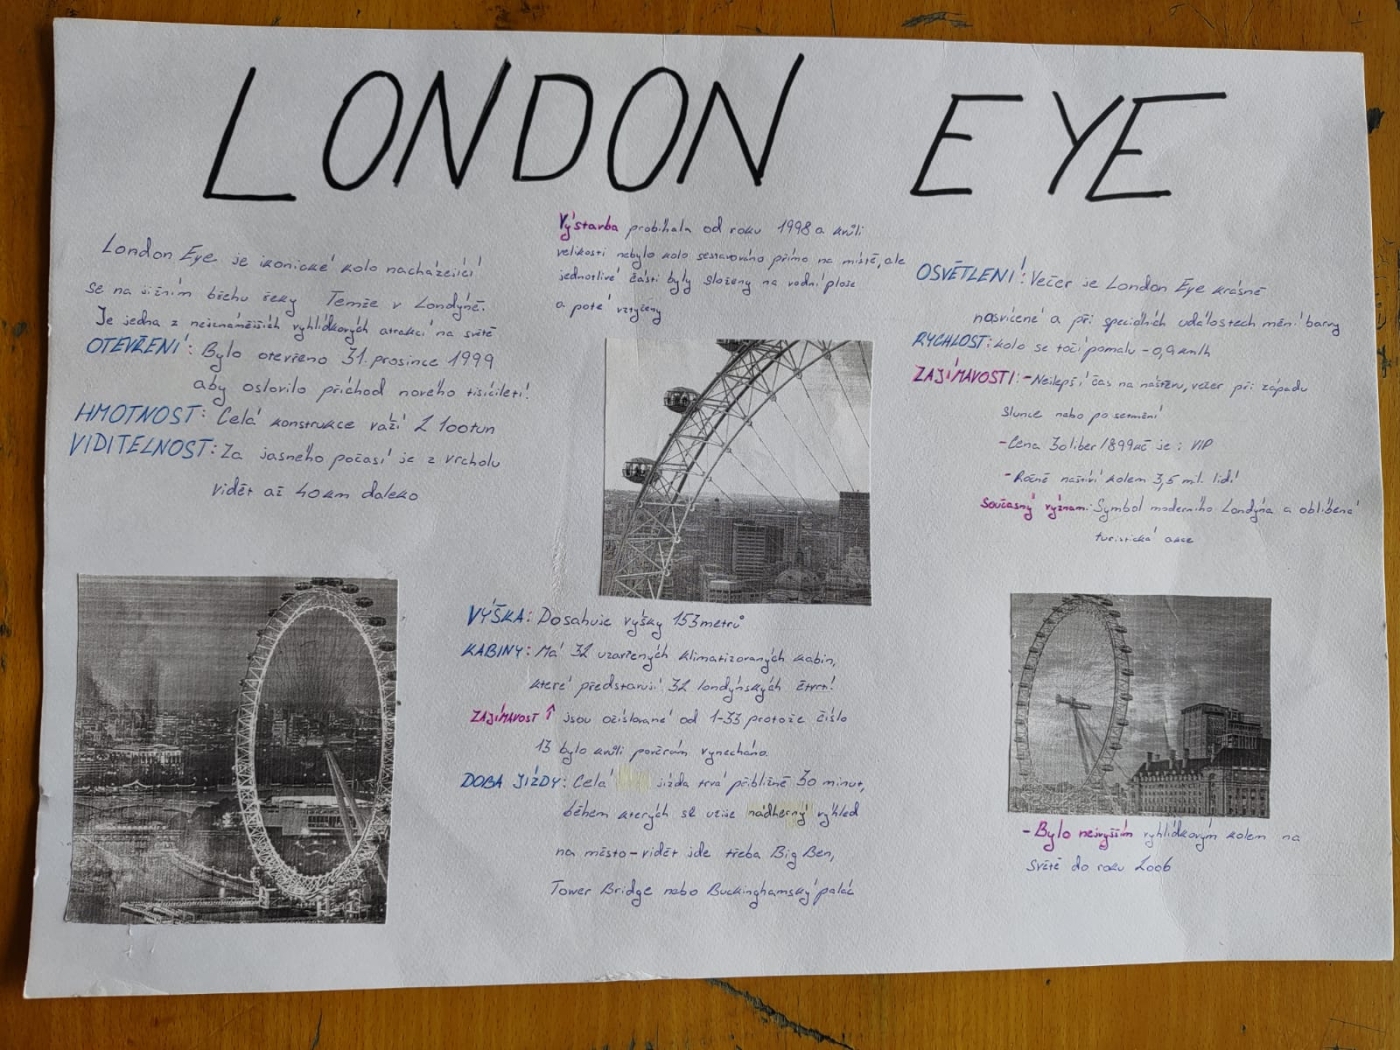 LONDON EYE
London Eye je ikonické kolo nacházející
se na jižním břehu řeky Temže v Londýně.
Je jedna z nejznámějších vyhlídkových atrakcí na světě
OTEVŘENÍ: Bylo otevřeno 31. prosince 1999
aby oslovilo příchod nového tisíciletí!
HMOTNOST: Celá konstrukce váží 2 100tun
VIDITELNOST: Za jasného počasí je z vrcholu
vidět až 40km daleko
Výstarba probíhala od roku 1998 a kvůli
velikosti nebylo kolo sestavováno přímo na místě, ale
jednotlivé části byly složeny na vodní ploše
a poté vztyčeny
VÝŠKA: Dosahuje výšky 153metrů
KABINY: Má 32 uzavřených klimatizovaných kabin,
které představují 32 londýnských čtvrtí
ZAJÍMAVOST ↑ jsou očíslované od 1-33 protože číslo
13 bylo kvůli pověrám vynecháno.
DOBA JÍZDY: Celá jízda trvá přibližně 30 minut,
během kterých si užije nádherný výhled
na město-vidět jde třeba Big Ben,
Tower Bridge nebo Buckinghamský palác
OSVĚTLENÍ: Večer je London Eye krásně
nasvícené a při speciálních událostech mění barvy
RYCHLOST: kolo se točí pomalu - 0,9 km/h
ZAJÍMAVOSTI: -Nejlepší čas na naštěvu, večer při západu
slunce nebo po setmění
-Cena 30liber/899kč je: VIP
-Ročně naštíví kolem 3,5 ml. lidí
Současný význam: Symbol moderního Londýna a oblíbená
turistická akce
-Bylo nejvyšším vyhlídkovým kolem na
Světě do roku 2006